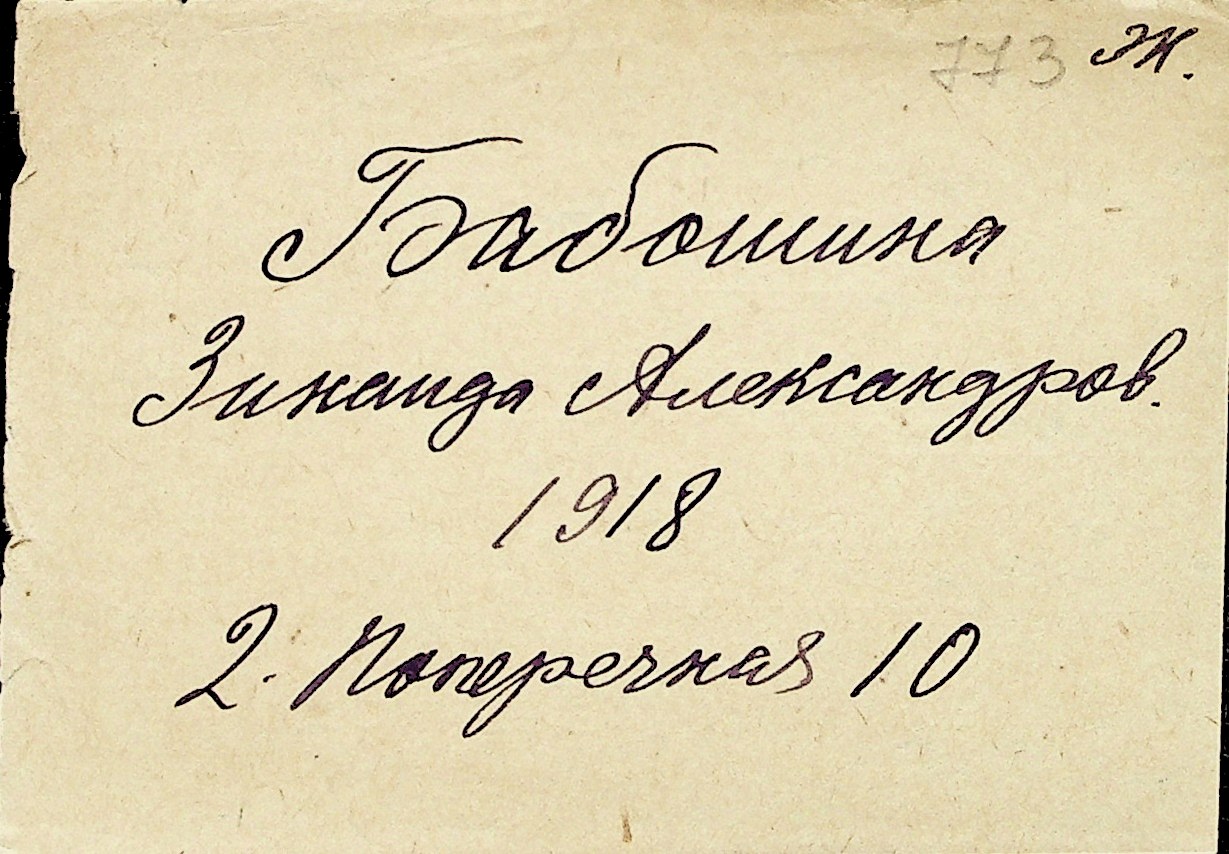 773 Ж.
Бабошина
Зинаида Александров.
1918
2. Поперечная 10